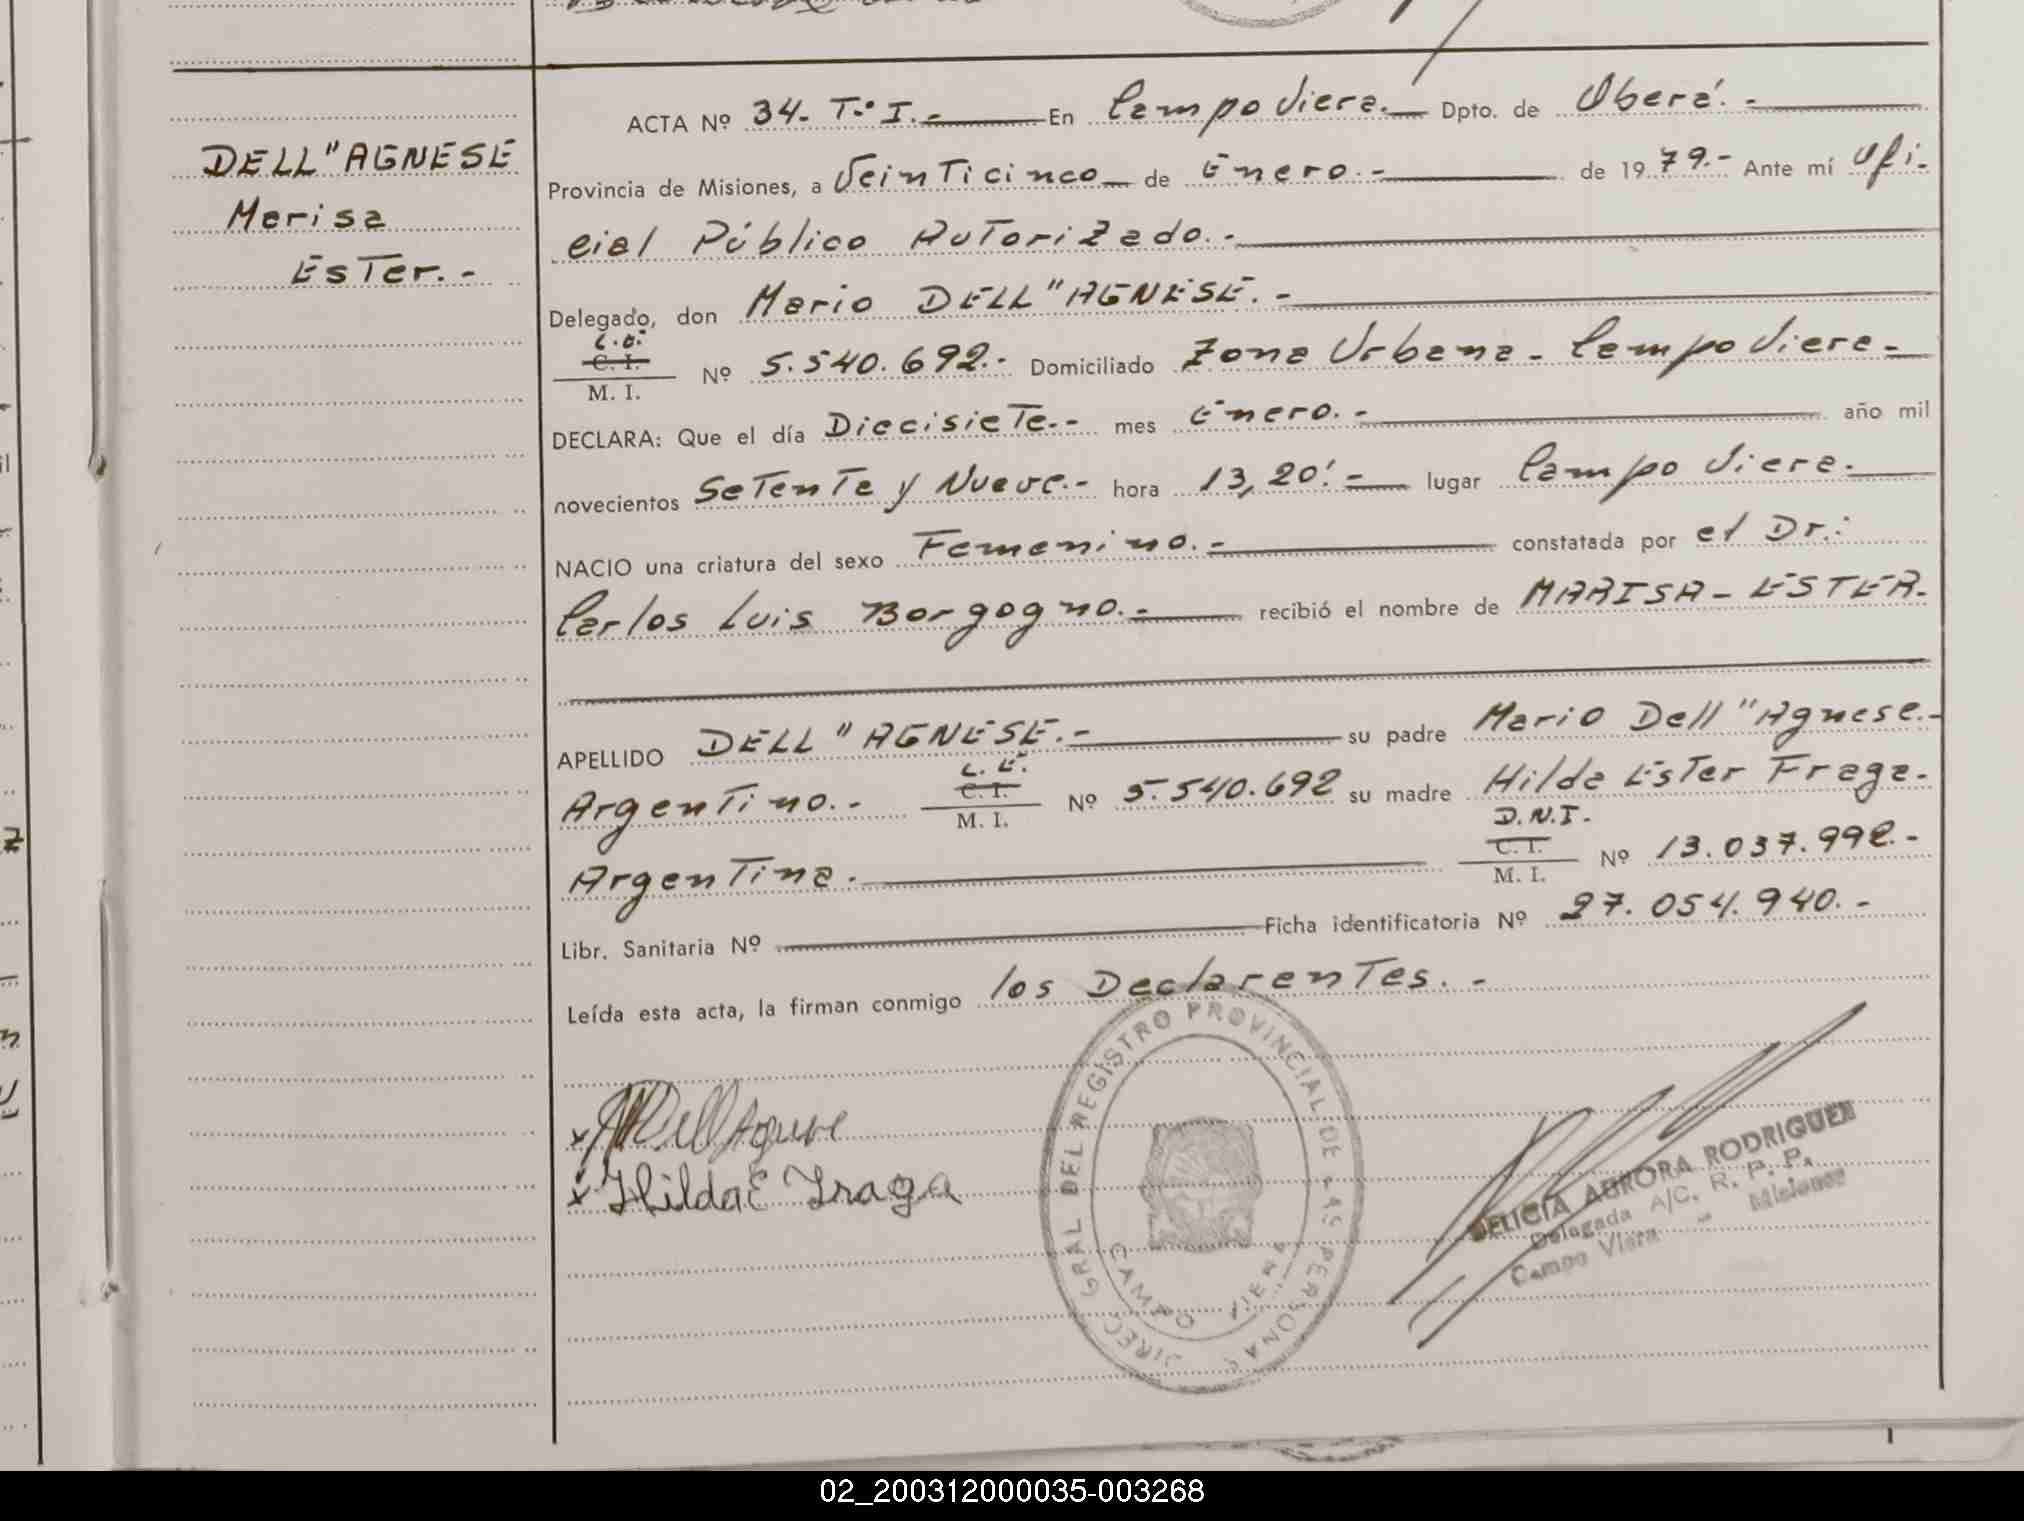 DELL"AGNESE
Marisa
Ester.-
ACTA Nº 34- T.º I.- En Campo Viera.- Dpto. de Oberá.-
Provincia de Misiones, a Veinticinco de Enero.- de 1979.- Ante mí Ofi-
cial Público Autorizado.-
Delegado, don Mario DELL"AGNESE.-
L.E.
C. I.
M. I. Nº 5.540.692.- Domiciliado Zona Urbana- Campo Viera-
DECLARA: Que el día Diecisiete.- mes Enero.- año mil
novecientos Setenta y Nueve.- hora 13,20'.- lugar Campo Viera.
NACIO una criatura del sexo Femenino.- constatada por el Dr.:
Carlos Luis Borgogno.- recibió el nombre de MARISA-ESTER.
APELLIDO DELL"AGNESE.- su padre Mario Dell"Agnese.-
Argentino.- L.E. C. I. M. I. Nº 5.540.692 su madre Hilda Ester Fraga.
Argentina. D.N.I. C. I. M. I. Nº 13.037.992.-
Libr. Sanitaria Nº Ficha identificatoria Nº 27.054.940.-
Leída esta acta, la firman conmigo los Declarantes.-
x Dell Agnese
x Hilda E Fraga
DIREC. GRAL DEL REGISTRO PROVINCIAL DE LAS PERSONAS
CAMPO VIERA
DELICIA AURORA RODRIGUEZ
Delegada A/C. R. P. P.
Campo Viera - Misiones
02_200312000035-003268